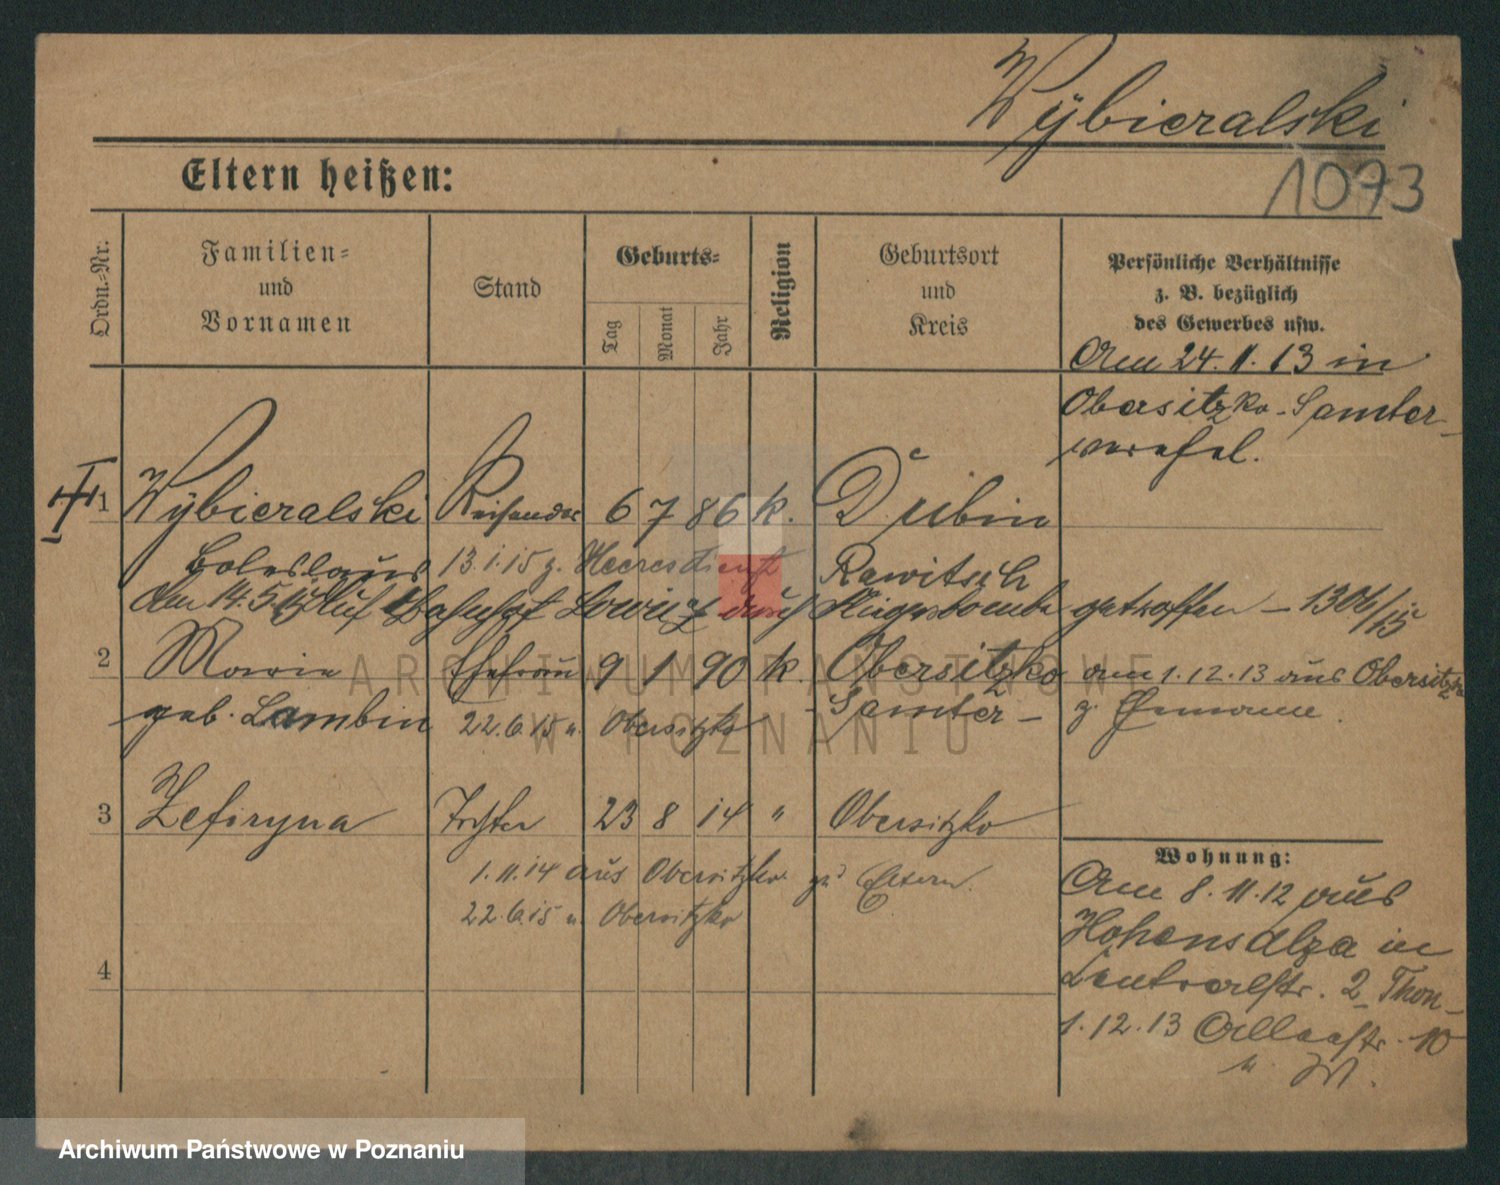 Wybieralski
1073
Eltern heißen:
Ordn.-Nr.
Familien-
und
Vornamen
Stand
Geburts-
Tag
Monat
Jahr
Religion
Geburtsort
und
Kreis
Persönliche Verhältnisse
z. B. bezüglich
des Gewerbes usw.
Am 24.11.13 in
Obersitzko-Samter
1 Wybieralski Reisender 6 7 86 k. Dubin
Boleslaus 13.1.15 z. Heeresdienst Rawitsch
Am 14.5.15 auf Bahnhof Lowicz durch getroffen – 1306/15
2 Marie Ehefrau 9 1 90 k. Obersitzko am 1.12.13 aus Obersitzko
geb. Lambin 22.6.15 n. Obersitzko Samter z. Ehemann.
3 Zefiryna Tochter 23 8 14 " Obersitzko
1.11.14 aus Obersitzko zu Eltern.
22.6.15 n. Obersitzko
4
Wohnung:
Am 8.11.12 aus
Hohensalza in
Centralstr. 2
1.12.13 10
ARCHIWUM PAŃSTWOWE
W POZNANIU
Archiwum Państwowe w Poznaniu